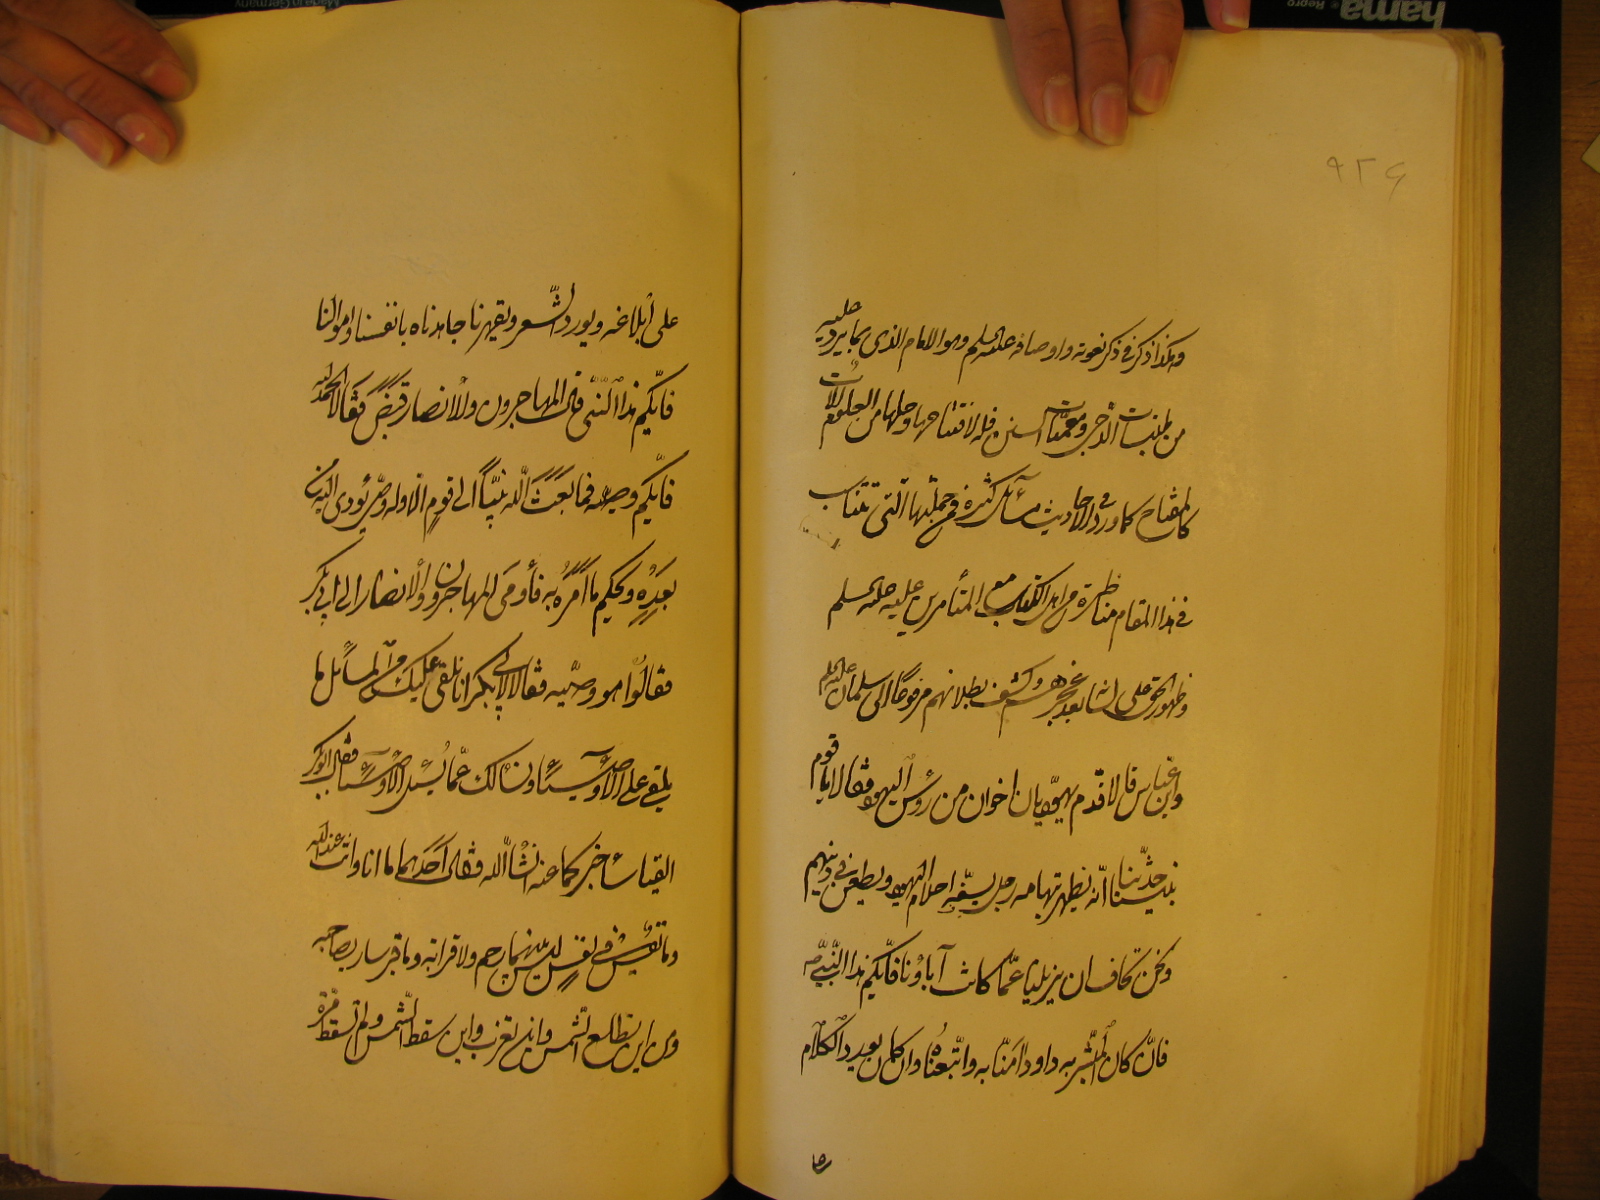 hama
Repro
Made in Germany
٩٢۶
وهكذا ذكر في ذكر نعوته واوصافه عليه السلم وهو الامام الذي بما يرد عليه
من ملمات الدجى ومعميات السنن فله لافتتاحها وحلها من العلوم الآت
كالمفتاح كما ورد في الاحاديث مسائل كثيرة فمن جملتها التي تتناسب
في هذا المقام مناظرة من اهل الكتاب مع المتأمرين عليه عليه السلم
وظهور الحق على لسانه بعد عجزهم وكشف بطلانهم مرفوعا الى سلمان عليه السلم
وابن عباس قالا قدم يهوديان اخوان من رؤس اليهود فقالا يا قوم
نبينا حدثنا انه يظهر بتهامه رجل يسفه احلام اليهود ويطعن في دينهم
ونحن نخاف ان يزيلنا عما كانت آباؤنا فايكم هذا النبي
فان كان المبشر به داود امنا به واتبعناه وان كان يورد الكلام
على ابلاغه ويورد الشعر ويقهرنا جاهدناه بانفسنا واموالنا
فايكم هذا النبي قال المهاجرون والانصار قبض فقالا الحمد لله
فايكم وصيه فما بعث الله نبيا الى قوم الا وله وصي يؤدي اليه من
بعده ويحكم ما امره به فأومى المهاجرون والانصار الى ابي بكر
فقالوا هو وصيه فقالا لابي بكر انا نلقي عليك من المسائل ما
يلقى على الاوصياء ونسألك عما يسئل الاوصياء فقال ابو بكر
القيا ساخبركما عنه انشاالله فقال احدهما ما انا وانت عند الله
وما نفس في نفس ليس بينهما رحم ولا قرابة وما قبر سار بصاحبه
ومن اين تطلع الشمس واين تغرب واين سقط الشمس ولم تسقط مرة